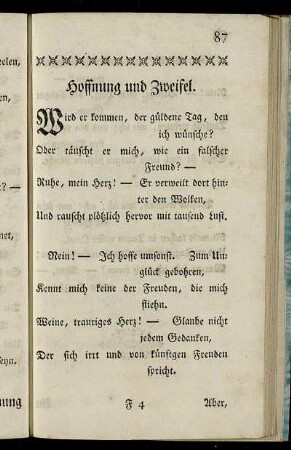 eelen,
en,
e? —
met,
Seyn.
ung
87
Hoffnung und Zweifel.
Wird er kommen, der güldene Tag, den
ich wünsche?
Oder täuscht er mich, wie ein falscher
Freund? —
Ruhe, mein Herz! — Er verweilt dort hin-
ter den Wolken,
Und rauscht plötzlich hervor mit tausend Lust.
Nein! — Ich hoffe umsonst. Zum Un-
glück gebohren,
Kennt mich keine der Freuden, die mich
fliehn.
Weine, trauriges Herz! — Glaube nicht
jedem Gedanken,
Der sich irrt und von künftgen Freuden
spricht.
F 4
Aber,